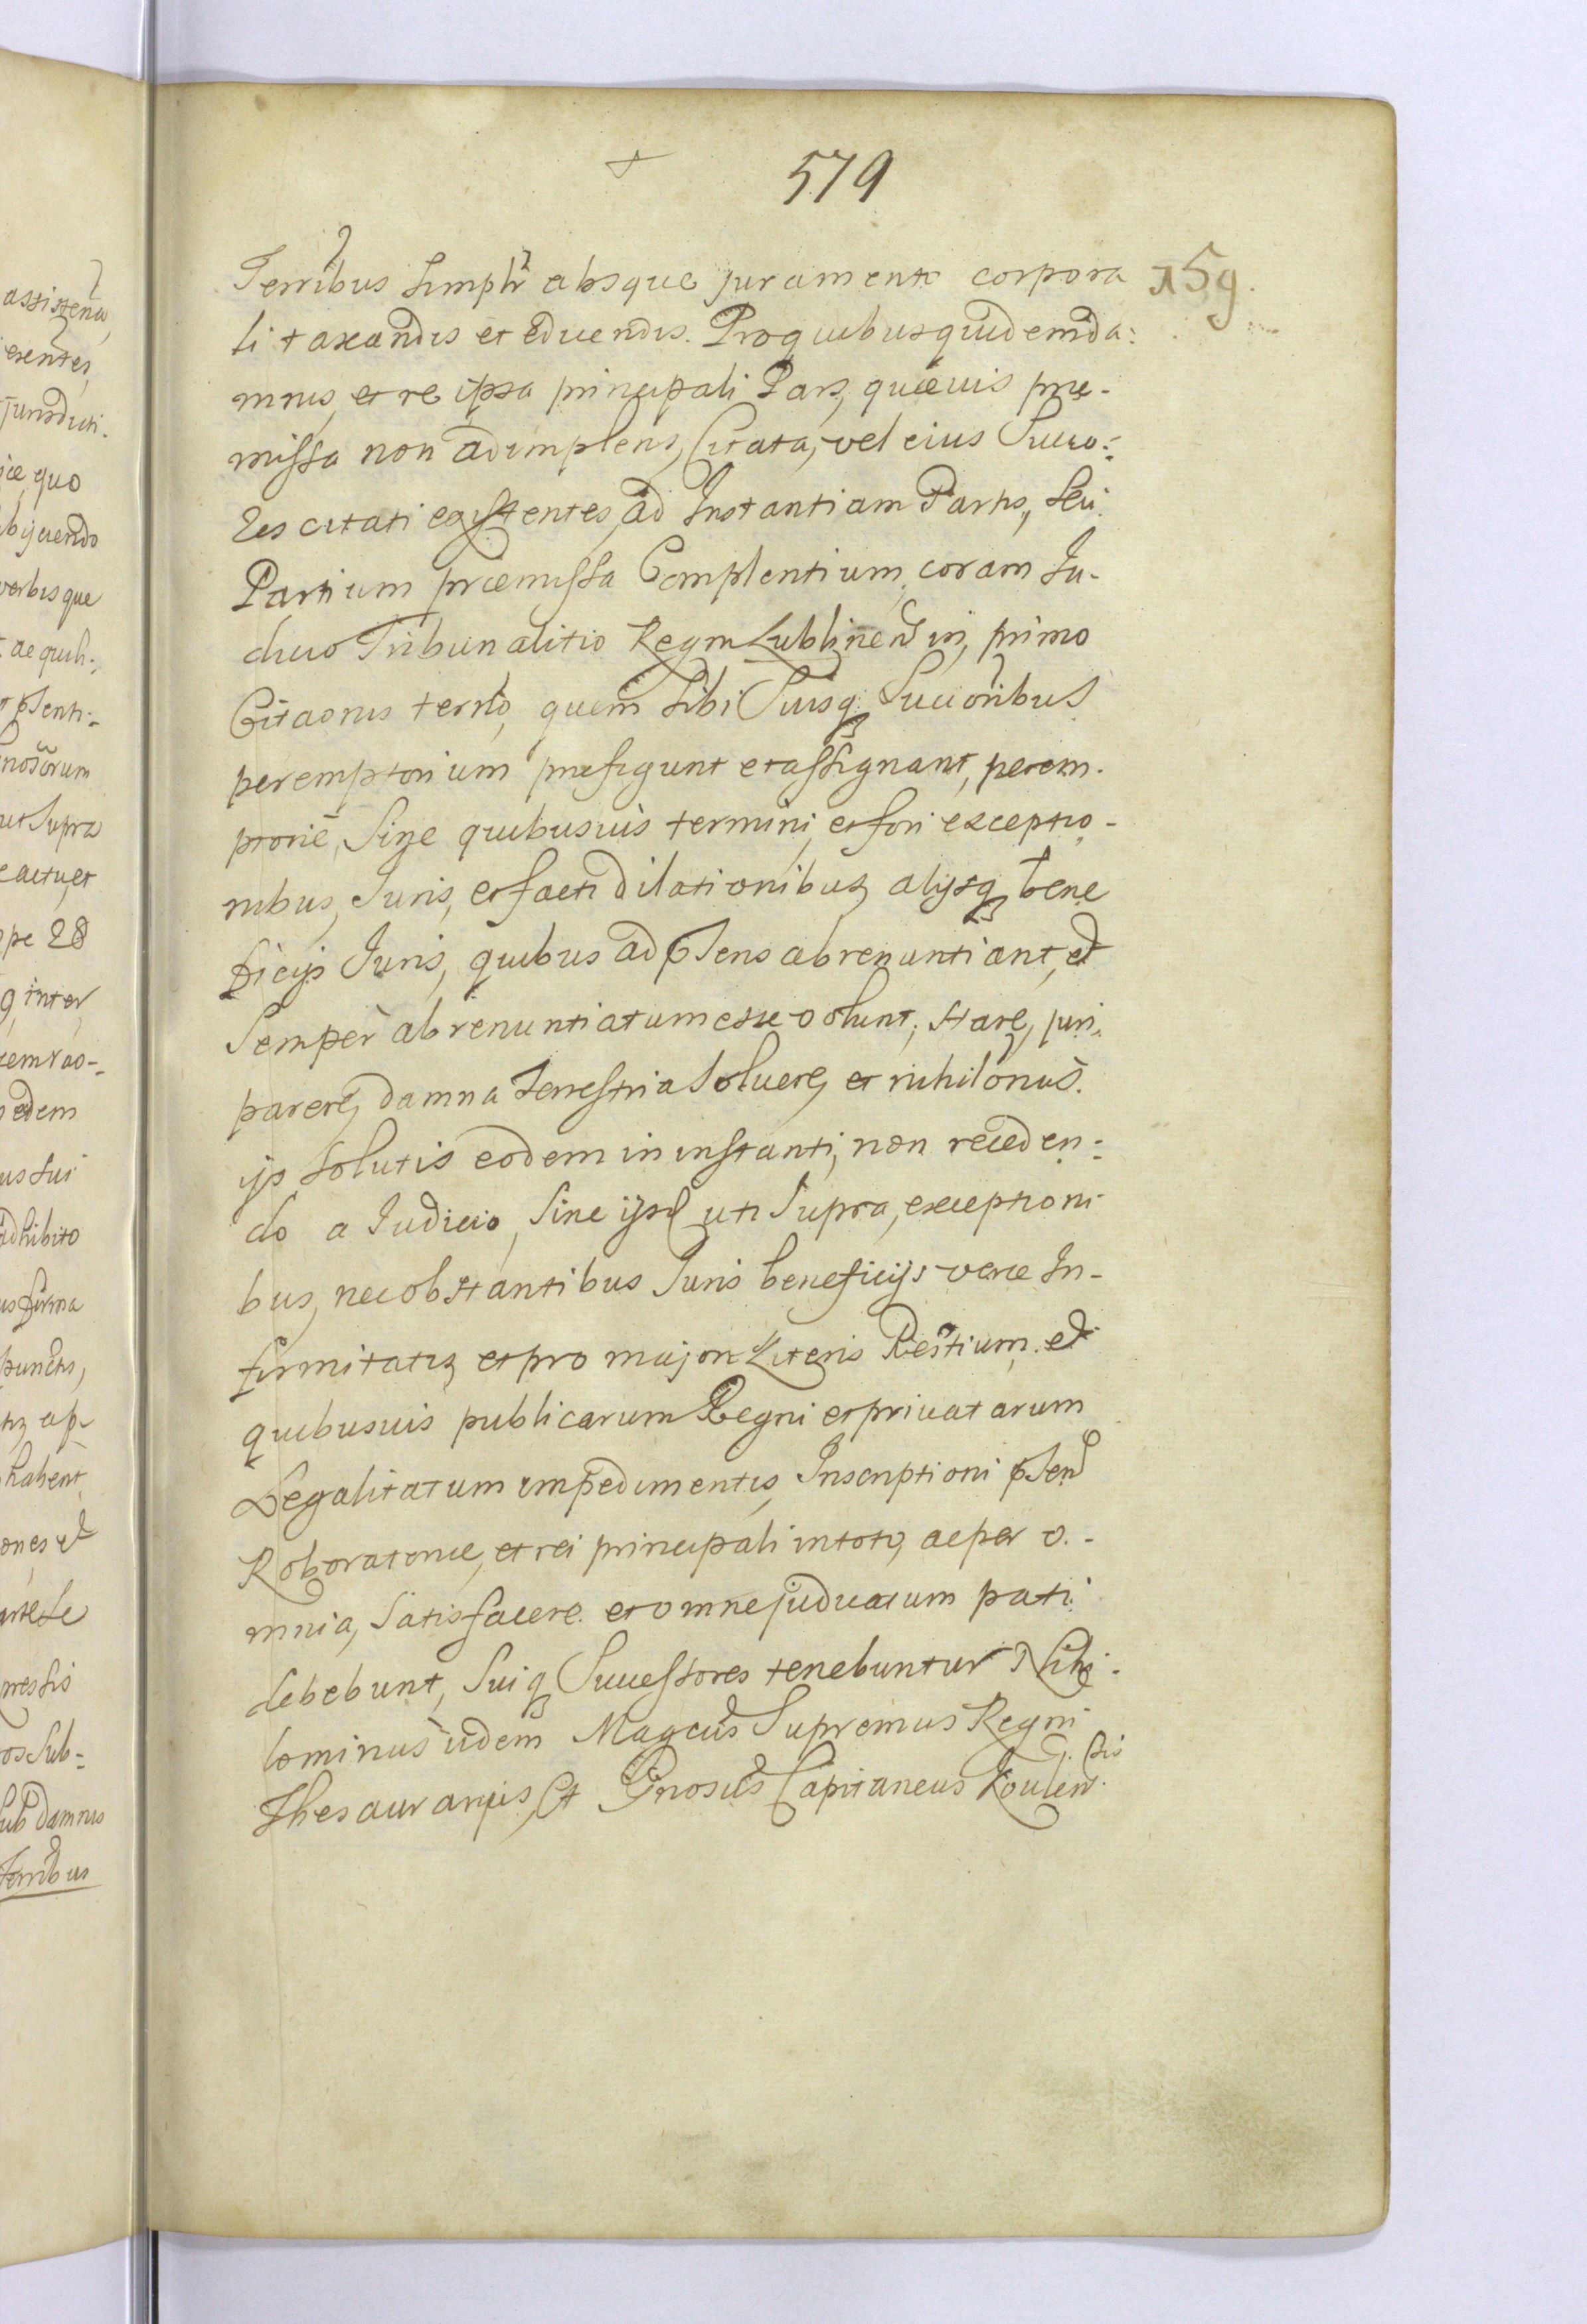 579
Terribus simplr absque juramento corpora 159.
li taxandis et educendis. Pro quibus quidem da:
mnis, et re ipsa principali Pars, quæuis præ-
missa non adimplens, Citata, vel eius Succo:
res citati existentes, ad Instantiam Partis, seu
Partium præmissa Complentium, coram Ju-
dicio Tribunalitio Regni Lublinen in, primo
Citaonis terno, quem sibi Suisq Succoribus
peremptorium prefigunt et assignant, perem-
ptorie, Sine quibusuis termini, et fori exceptio-
nibus, Juris, et facti dilationibus, alysq bene
ficijs Juris, quibus ad psens abrenuntiant, et
Semper abrenuntiatum esse volunt, stare, juri
parere, damna terrestria soluere, et nihilonus.
ijs solutis eodem in instanti, non receden:
do a Judicio, sine ijsd uti Supra, exceptioni
bus, nec obstantibus Juris beneficijs veræ In-
firmitatis, et pro majori Literis Restium et
quibusuis publicarum Regni et priuatarum
Legalitatum impedimentis, Inscriptioni psen
Roboratoriæ, et rei principali in toto, ac per o.-
mnia, Satisfacere et omne judicatum pati
debebunt, suiq Successores tenebuntur Nihi-
lominus iidem Magcus Supremus Regni
Thesaurarijs, Et Gnosus Capitaneus
assistena,
erentes,
jurisdicti-
quo
bijciendo
verbisque
ac quili:
psenti:
nosorum
ut Supra
actu, et
28
inter
edem
sui
adhibito
firma
punctis,
habent
Sub:
sub damnis
Terribus